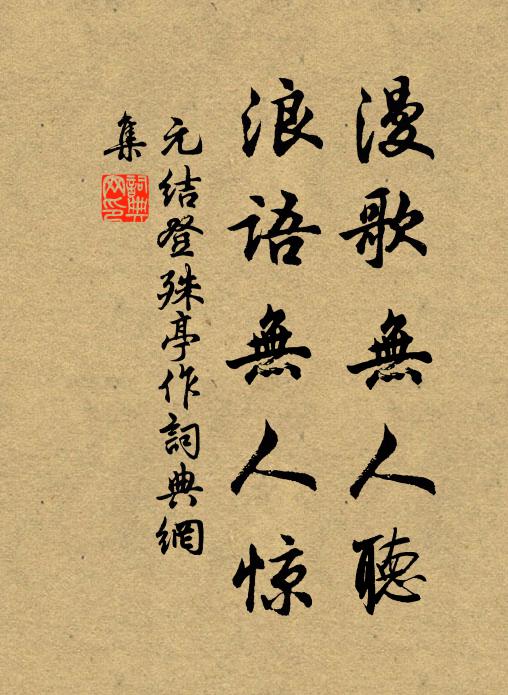 漫歌無人聽
浪語無人惊
元結登殊亭作詞典網
集
詞典
网印